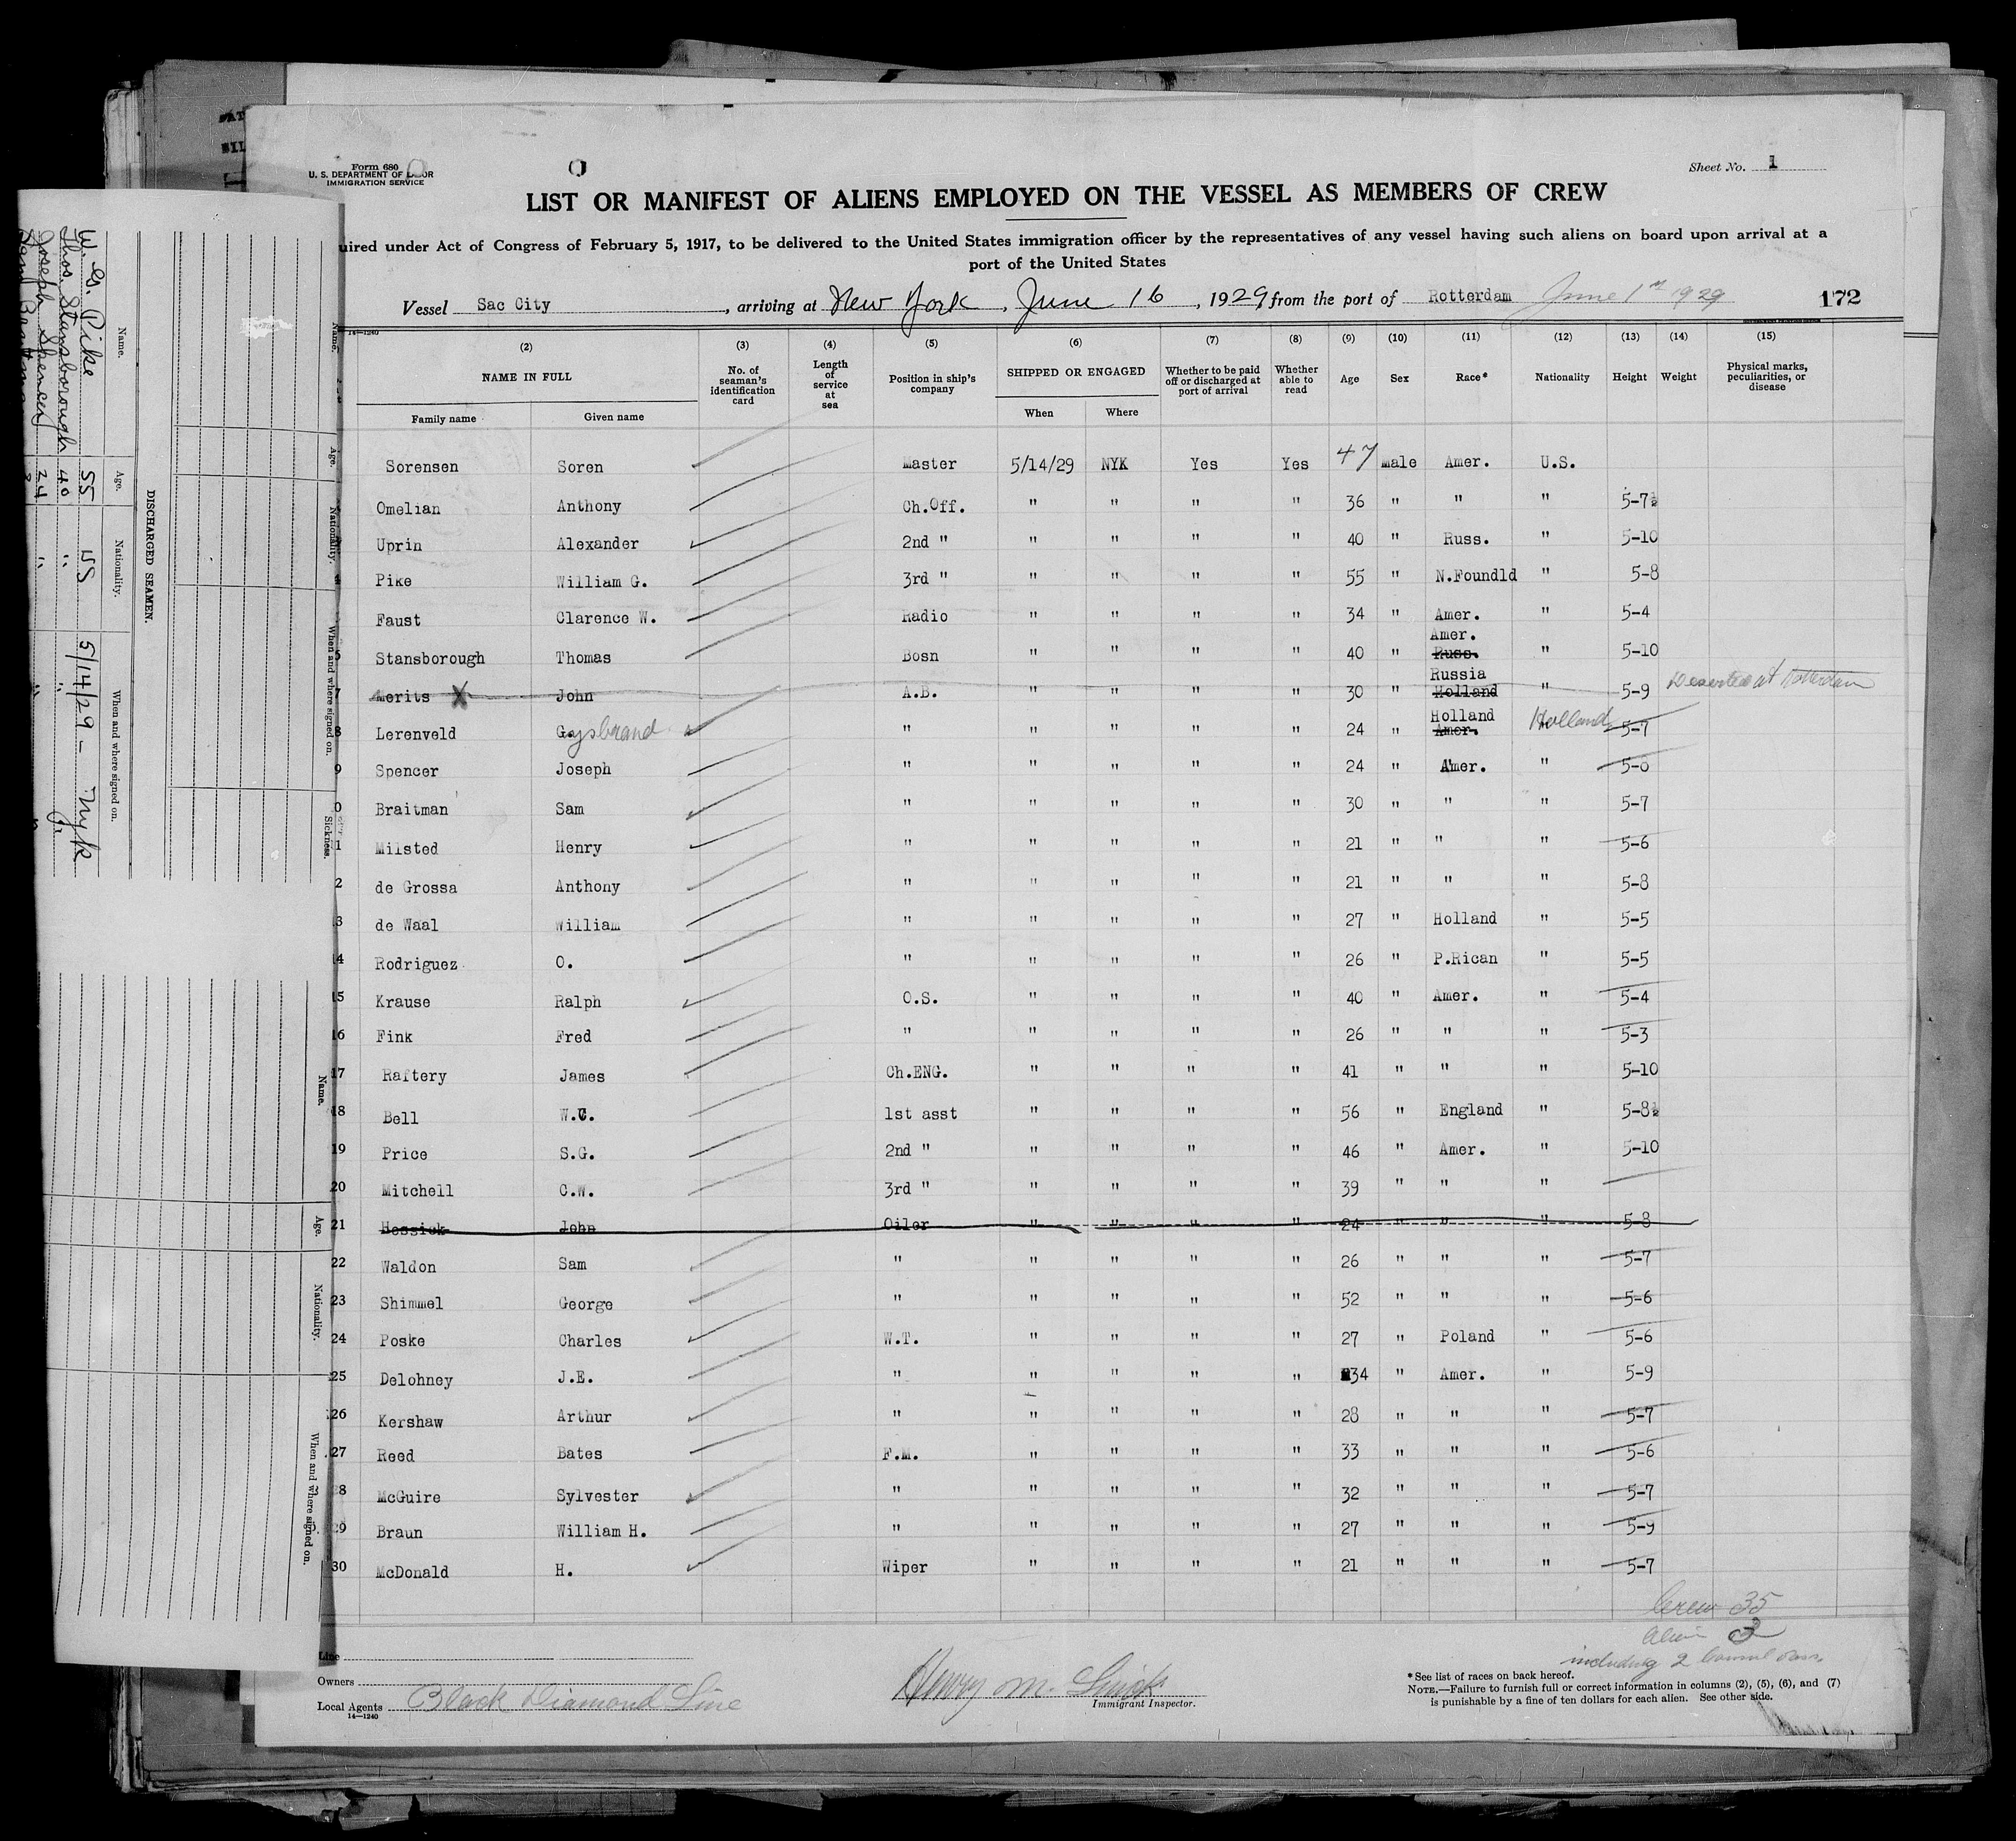 Form 680
U. S. DEPARTMENT OF LABOR
IMMIGRATION SERVICE
Sheet No. 1
LIST OR MANIFEST OF ALIENS EMPLOYED ON THE VESSEL AS MEMBERS OF CREW
uired under Act of Congress of February 5, 1917, to be delivered to the United States immigration officer by the representatives of any vessel having such aliens on board upon arrival at a
port of the United States
Vessel Sac City, arriving at New York, June 16, 1929 from the port of Rotterdam June 1st 1929 172
14—1240
(2) (3) (4) (5) (6) (7) (8) (9) (10) (11) (12) (13) (14) (15)
NAME IN FULL Family name Given name No. of seaman's identification card Length of service at sea Position in ship's company SHIPPED OR ENGAGED When Where Whether to be paid off or discharged at port of arrival Whether able to read Age Sex Race* Nationality Height Weight Physical marks, peculiarities, or disease
Sorensen Soren Master 5/14/29 NYK Yes Yes 47 male Amer. U.S.
Omelian Anthony Ch.Off. " " " " 36 " " " 5-7½
Uprin Alexander 2nd " " " " " 40 " Russ. " 5-10
4 Pike William G. 3rd " " " " " 55 " N.Foundld " 5-8
Faust Clarence W. Radio " " " " 34 " Amer. " 5-4
Stansborough Thomas Bosn " " " " 40 " Amer. Russ. " 5-10
7 Merits X John A.B. " " " " 30 " Russia Holland " 5-9 Deserted at Rotterdam
8 Lerenveld Gysbrand " " " " " 24 " Holland Amer. Holland 5-7
9 Spencer Joseph " " " " " 24 " Amer. " 5-6
0 Braitman Sam " " " " " 30 " " " 5-7
1 Milsted Henry " " " " " 21 " " " 5-6
2 de Grossa Anthony " " " " " 21 " " " 5-8
3 de Waal William " " " " " 27 " Holland " 5-5
14 Rodriguez O. " " " " " 26 " P.Rican " 5-5
15 Krause Ralph O.S. " " " " 40 " Amer. " 5-4
16 Fink Fred " " " " " 26 " " " 5-3
17 Raftery James Ch.ENG. " " " " 41 " " " 5-10
18 Bell W.C. 1st asst " " " " 56 " England " 5-8½
19 Price S.G. 2nd " " " " " 46 " Amer. " 5-10
20 Mitchell C.W. 3rd " " " " " 39 " " "
21 Hessick John Oiler " " " " 24 " " " 5-8
22 Waldon Sam " " " " " 26 " " " 5-7
23 Shimmel George " " " " " 52 " " " 5-6
24 Poske Charles W.T. " " " " 27 " Poland " 5-6
25 Delohney J.E. " " " " " 34 " Amer. " 5-9
26 Kershaw Arthur " " " " " 28 " " " 5-7
27 Reed Bates F.M. " " " " 33 " " " 5-6
28 McGuire Sylvester " " " " " 32 " " " 5-7
29 Braun William H. " " " " " 27 " " " 5-9
30 McDonald H. Wiper " " " " 21 " " " 5-7
Crew 35
Alien 3
including 2
Line
Owners
Local Agents Black Diamond Line
14—1240
Henry M.
Immigrant Inspector.
*See list of races on back hereof.
NOTE.—Failure to furnish full or correct information in columns (2), (5), (6), and (7)
is punishable by a fine of ten dollars for each alien. See other side.
DISCHARGED SEAMEN.
Name. Age. Nationality. When and where signed on.
W. G. Pike 55 US 5/14/29 - Nyk
Thos. Stansborough 40 " " "
Joseph Spencer 24 " "
Name. Age. Nationality. When and where signed on. Sickness.
Name. Age. Nationality. When and where signed on.